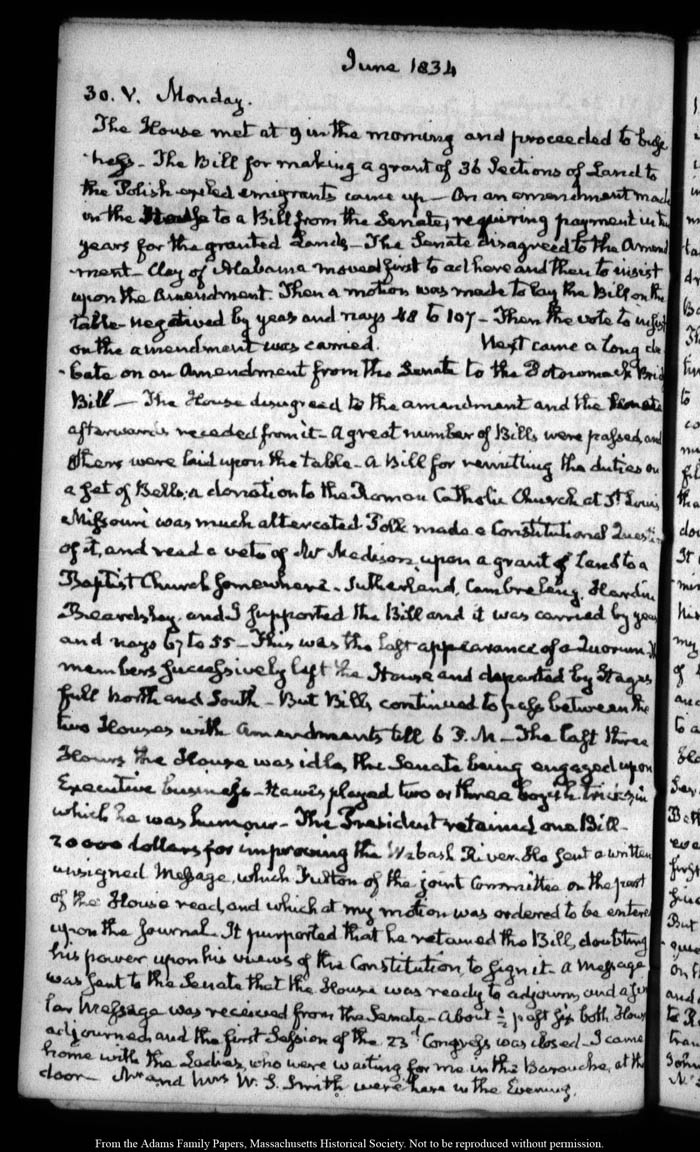 June 1834
30. V. Monday.
The House met at 9 in the morning and proceeded to busi
ness - The Bill for making a grant of 36 Sections of Land to
the Polish exiled emigrants came up - On an amendment made
in the House to a Bill from the Senate, requiring payment in
years for the granted Lands - The Senate disagreed to the Amend
ment - Clay of Alabama moved first to adhere and then to insist
upon the Amendment. Then a motion was made to lay the Bill on the
table - negatived by yeas and nays 48 to 107 - Then the vote to insist
on the amendment was carried. Next came a long de
bate on an Amendment from the Senate to the Potowmack Brid
Bill - The House disagreed to the amendment and the Senate
afterwards receded from it - A great number of Bills were passed, and
others were laid upon the table - A Bill for remitting the duties on
a set of Bells; a donation to the Roman Catholic Church at St Louis
Missouri was much altercated Polk made a Constitutional Questi
of it, and read a veto of Mr Madison, upon a grant of Land to a
Baptist Church somewhere - Sutherland, Cambreleng, Hardin
Beardsley, and I supported the Bill and it was carried by yeas
and nays 67 to 55 - This was the last appearance of a Quorum
members successively left the House and departed by Stages
full North and South - But Bills continued to pass between the
two Houses with Amendments till 6 P. M - The last three
Hours the House was idle, the Senate being engaged upon
Executive business - Hawes played two or three boyish tricks in
which he was humour - The President retained one Bill -
20000 dollars for improving the Wabash River. He sent a written
unsigned Message, which Fulton of the joint Committee on the part
of the House read, and which at my motion was ordered to be entere
upon the Journal. It purported that he retained the Bill, doubting
his power upon his views of the Constitution, to sign it - A Message
was sent to the Senate that the House was ready to adjourn, and a simi
lar Message was received from the Senate - About ½ past six both Hous
adjourned and the first Session of the 23d Congress was closed - I came
home with the Ladies, who were waiting for me in the Barouche, at the
door - Mr and Mrs W. S. Smith were here in the Evening.
From the Adams Family Papers, Massachusetts Historical Society. Not to be reproduced without permission.